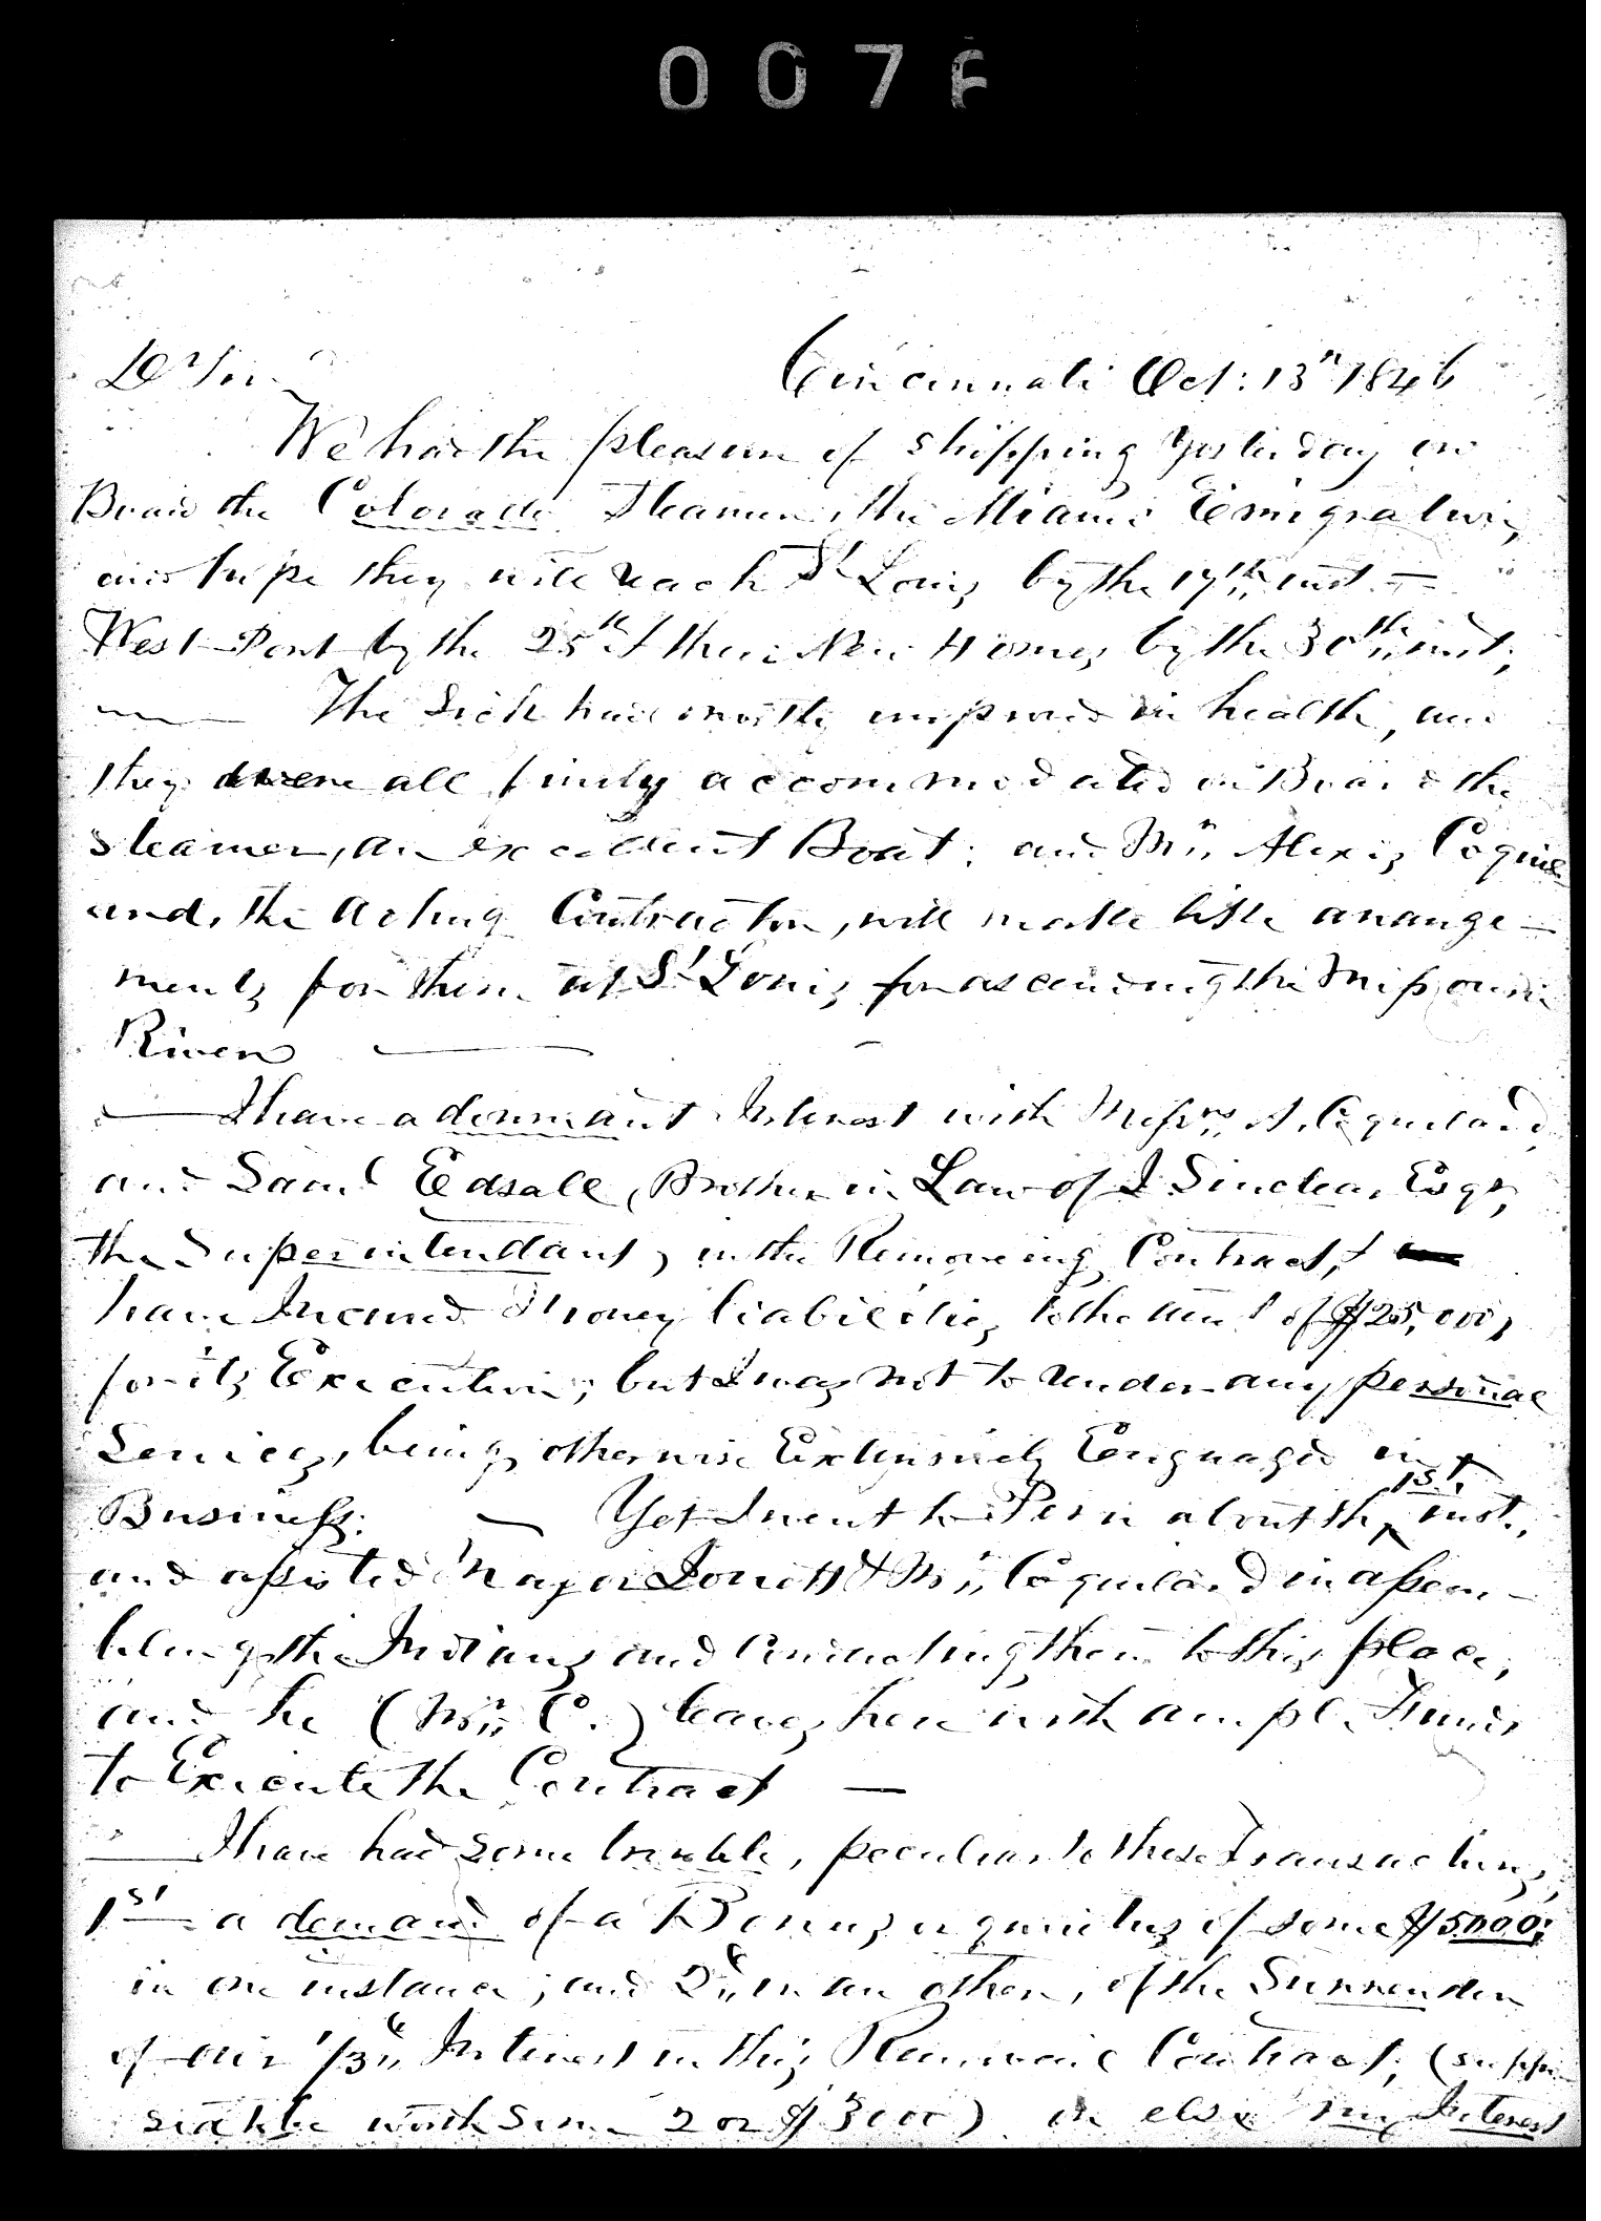 0076
Dr Sir
Cincinnati Oct: 13th 1846
We had the pleasure of shipping yesterday on
Board the Colorado Steamer, the Miami Emigration,
and hope they will reach St Louis by the 17th,, inst —
West Port by the 25th & their New Homes by the 30th,, inst,
— The Sick had mostly improved in health, and
they were all finely accommodated on Board the
steamer, an excellent Boat; and Mr,, Alexis Coquill-
ard, the acting Contractor, will make like arrange-
ments for them at St Louis for ascending the Missouri
River —
— I have a dormant Interest with Messrs,, A. Coquilard,
and Saml Edsall, (Brother in Law of J Sinclear, Esqr,
the Superintendant, in the Removeing Contract, &
have Incurred Money liabilities to the amt of $25,000,
for its Execution; but I was not to render any personal
Services, being otherwise Extensively Enguaged in
Business. — Yet I went to Peru about the 1st, inst.,
and assisted Major Lovell & Mr,, Coquilard in assem-
bling the Indians and Conducting them to this place,
and he (Mr,, C.) leaves here with ample Funds
to Execute the Contract —
— I have had some trouble, peculiar to these Transactions,
1st — a demand of a Bonus or gratus of some $5000;
in one instance; and 2d,, in an other, of the Surrender
of an 1/3d,, Interest in this Removal Contract, (suppo-
sed to be worth Some 2 or $3000) or else my Interest